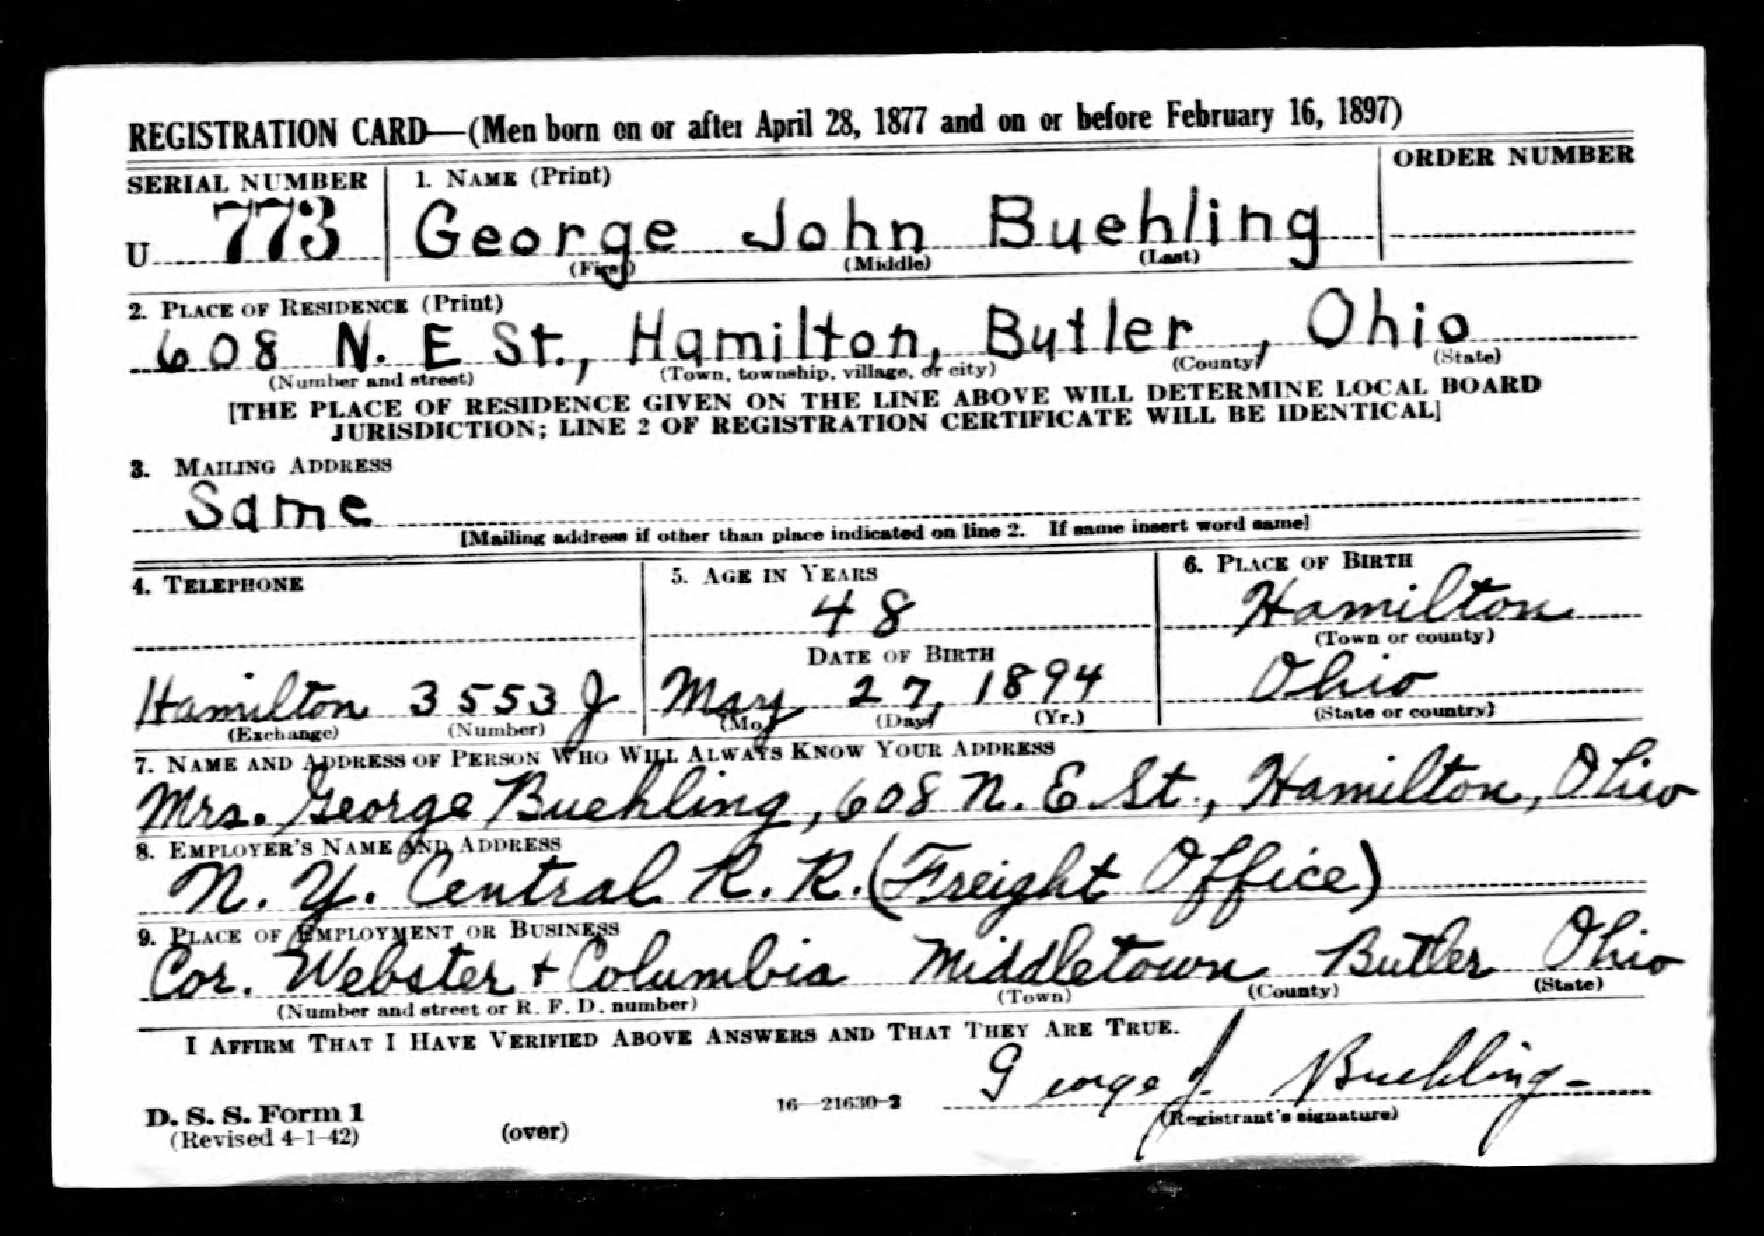 REGISTRATION CARD—(Men born on or after April 28, 1877 and on or before February 16, 1897)
SERIAL NUMBER 1. NAME (Print) ORDER NUMBER
U 773 George John Buehling
(First) (Middle) (Last)
2. PLACE OF RESIDENCE (Print)
608 N. E St., Hamilton, Butler, Ohio
(Number and street) (Town, township, village, or city) (County) (State)
[THE PLACE OF RESIDENCE GIVEN ON THE LINE ABOVE WILL DETERMINE LOCAL BOARD
JURISDICTION; LINE 2 OF REGISTRATION CERTIFICATE WILL BE IDENTICAL]
3. MAILING ADDRESS
Same
[Mailing address if other than place indicated on line 2. If same insert word same]
4. TELEPHONE 5. AGE IN YEARS 6. PLACE OF BIRTH
48 Hamilton
(Town or county)
DATE OF BIRTH
Hamilton 3553 J May 27, 1894 Ohio
(Exchange) (Number) (Mo.) (Day) (Yr.) (State or country)
7. NAME AND ADDRESS OF PERSON WHO WILL ALWAYS KNOW YOUR ADDRESS
Mrs. George Buehling, 608 N. E St., Hamilton, Ohio
8. EMPLOYER'S NAME AND ADDRESS
N. Y. Central R. R. (Freight Office)
9. PLACE OF EMPLOYMENT OR BUSINESS
Cor. Webster + Columbia Middletown Butler Ohio
(Number and street or R. F. D. number) (Town) (County) (State)
I AFFIRM THAT I HAVE VERIFIED ABOVE ANSWERS AND THAT THEY ARE TRUE.
George J. Buehling
D. S. S. Form 1 16—21630-2 (Registrant's signature)
(Revised 4-1-42) (over)